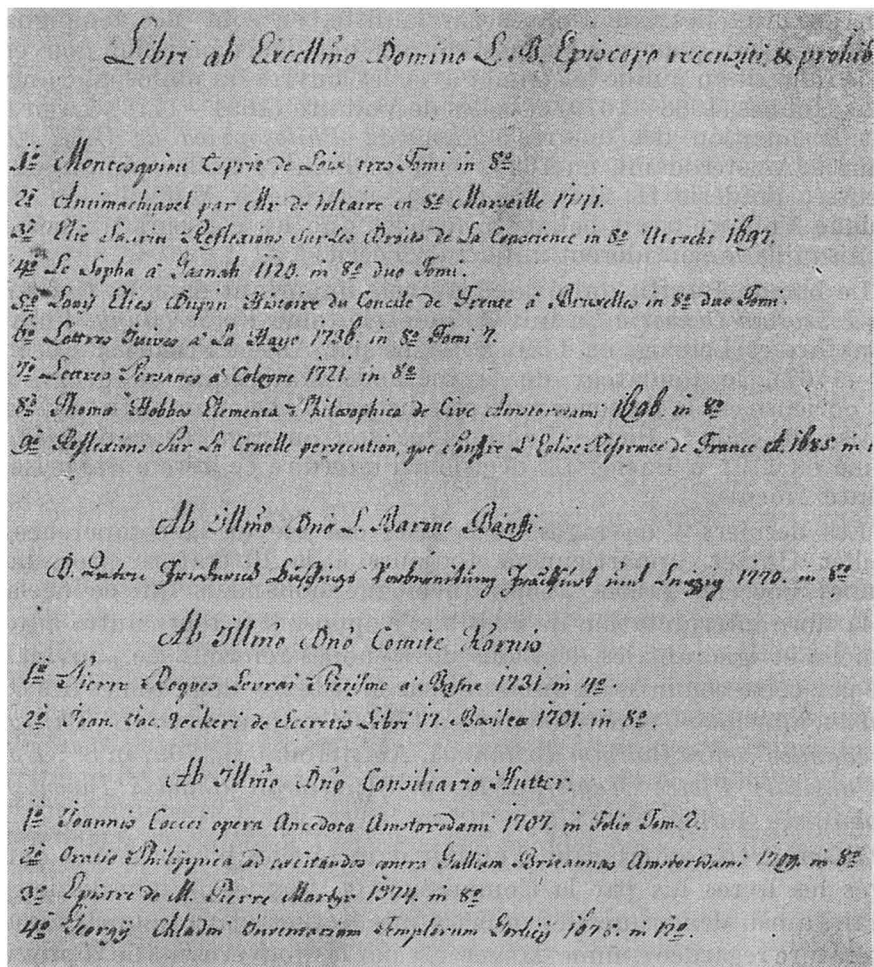 Libri ab Excellmo Domino L. B. Episcopo recensiti & prohib
1º Montesquiou Esprit de Loix tres Tomi in 8º
2º Antimachiavel par Mr de Voltaire en 8º Marseille 1741.
3º Elie Saurin Reflexions Sur Les Droits de La Conscience in 8º Utrecht 1697.
4º Le Sopha à Gaznah 1120. in 8º duo Tomi.
5º Louis Elies Dupin Histoire du Concile de Trente à Bruxelles in 8º duo Tomi.
6º Lettres Juives à La Haye 1736. in 8º Tomi 7.
7º Lettres Persanes à Cologne 1721. in 8º
8º Thomæ Hobbes Elementa Philosophica de Cive Amsterodami 1696. in 8º
9º Reflexions Sur La Cruelle persecution, que Souffre L'Eglise Reformée de France 1685. in
Ab Illmo Dno L. Barone Bánffi.
D. Friedrich Büssings Frankfurt und Leipzig 1770. in 8º
Ab Illmo Dno Comite Kornis
1º Pierre Roques Le vrai Pietisme à Basne 1731. in 4º.
2º Joan. Jac. Veckeri de Secretis Libri 17. Basileæ 1701. in 8º.
Ab Illmo Dno Consiliario Hutter.
1º Joannis Coccei opera Anecdota Amsterodami 1707. in Folio Tom. 2.
2º Oratio Philippica ad excitandos contra Galliam Britannos Amsterdami in 8º
3º Epistre de M. Pierre Martyr 1574. in 8º
4º Georgij Inventarium Templorum 1678. in 12º.